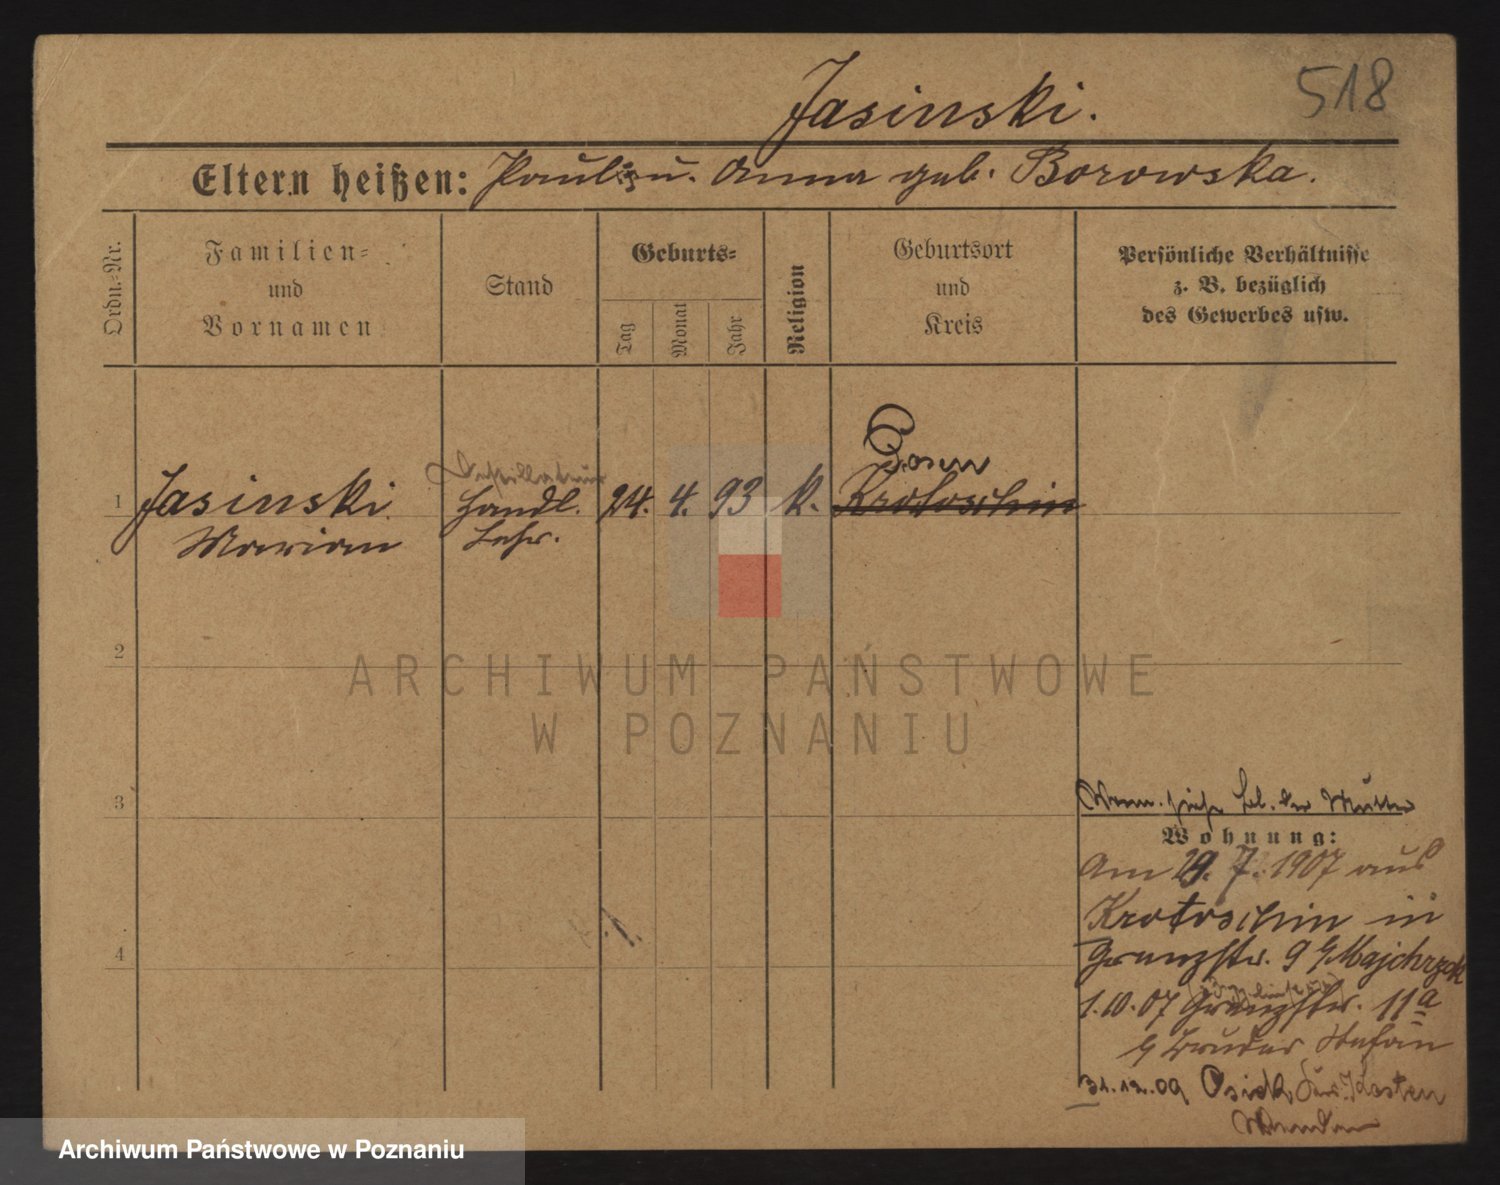 518
Jasinski.
Eltern heißen: Paul u. Anna geb. Borowska.
Ordn.-Nr.
Familien- und Vornamen
Stand
Geburts-
Tag
Monat
Jahr
Religion
Geburtsort und Kreis
Persönliche Verhältnisse
z. B. bezüglich
des Gewerbes usw.
Posen
1 Jasinski Handl. 24. 4. 93 k. Krotoschin
Marian Lehr.
2
3
4
der Mutter
Wohnung:
Am 29. 7. 1907 aus
Krotoschin in
Grenzstr. 9 b/Majchrzak
1.10.07 Grenzstr. 11a
b/ Bruder Stefan
31.12.09 Osiek Kr. Kosten
ARCHIWUM PAŃSTWOWE
W POZNANIU
Archiwum Państwowe w Poznaniu